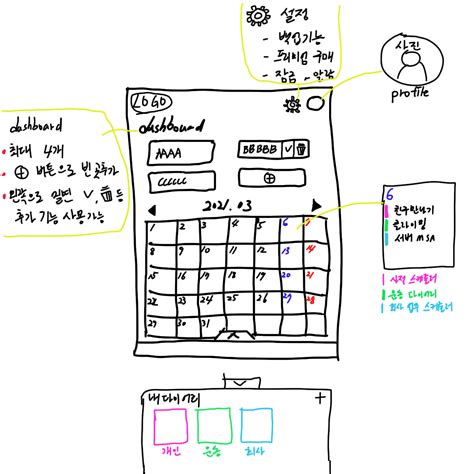 설정
- 백업기능
- 프리미엄 구매
- 잠금 - 알람
사진
profile
LOGO
dashboard
dashboard
• 최대 4개
• ⊕ 버튼으로 빈곳추가
• 왼쪽으로 밀면 ✓, 🗑 등
추가 기능 사용가능
AAAA
BBBBB ✓
CCCCCC
⊕
◀ 2021.03 ▶
1 2 3 4 5 6 7
8 9 10 11 12 13 14
15 16 17 18 19 20 21
22 23 24 25 26 27 28
29 30 31
6
친구만나기
클라이밍
서버 MSA
사적 스케줄러
운동 다이어리
회사 업무 스케줄러
내 다이어리 +
개인 운동 회사